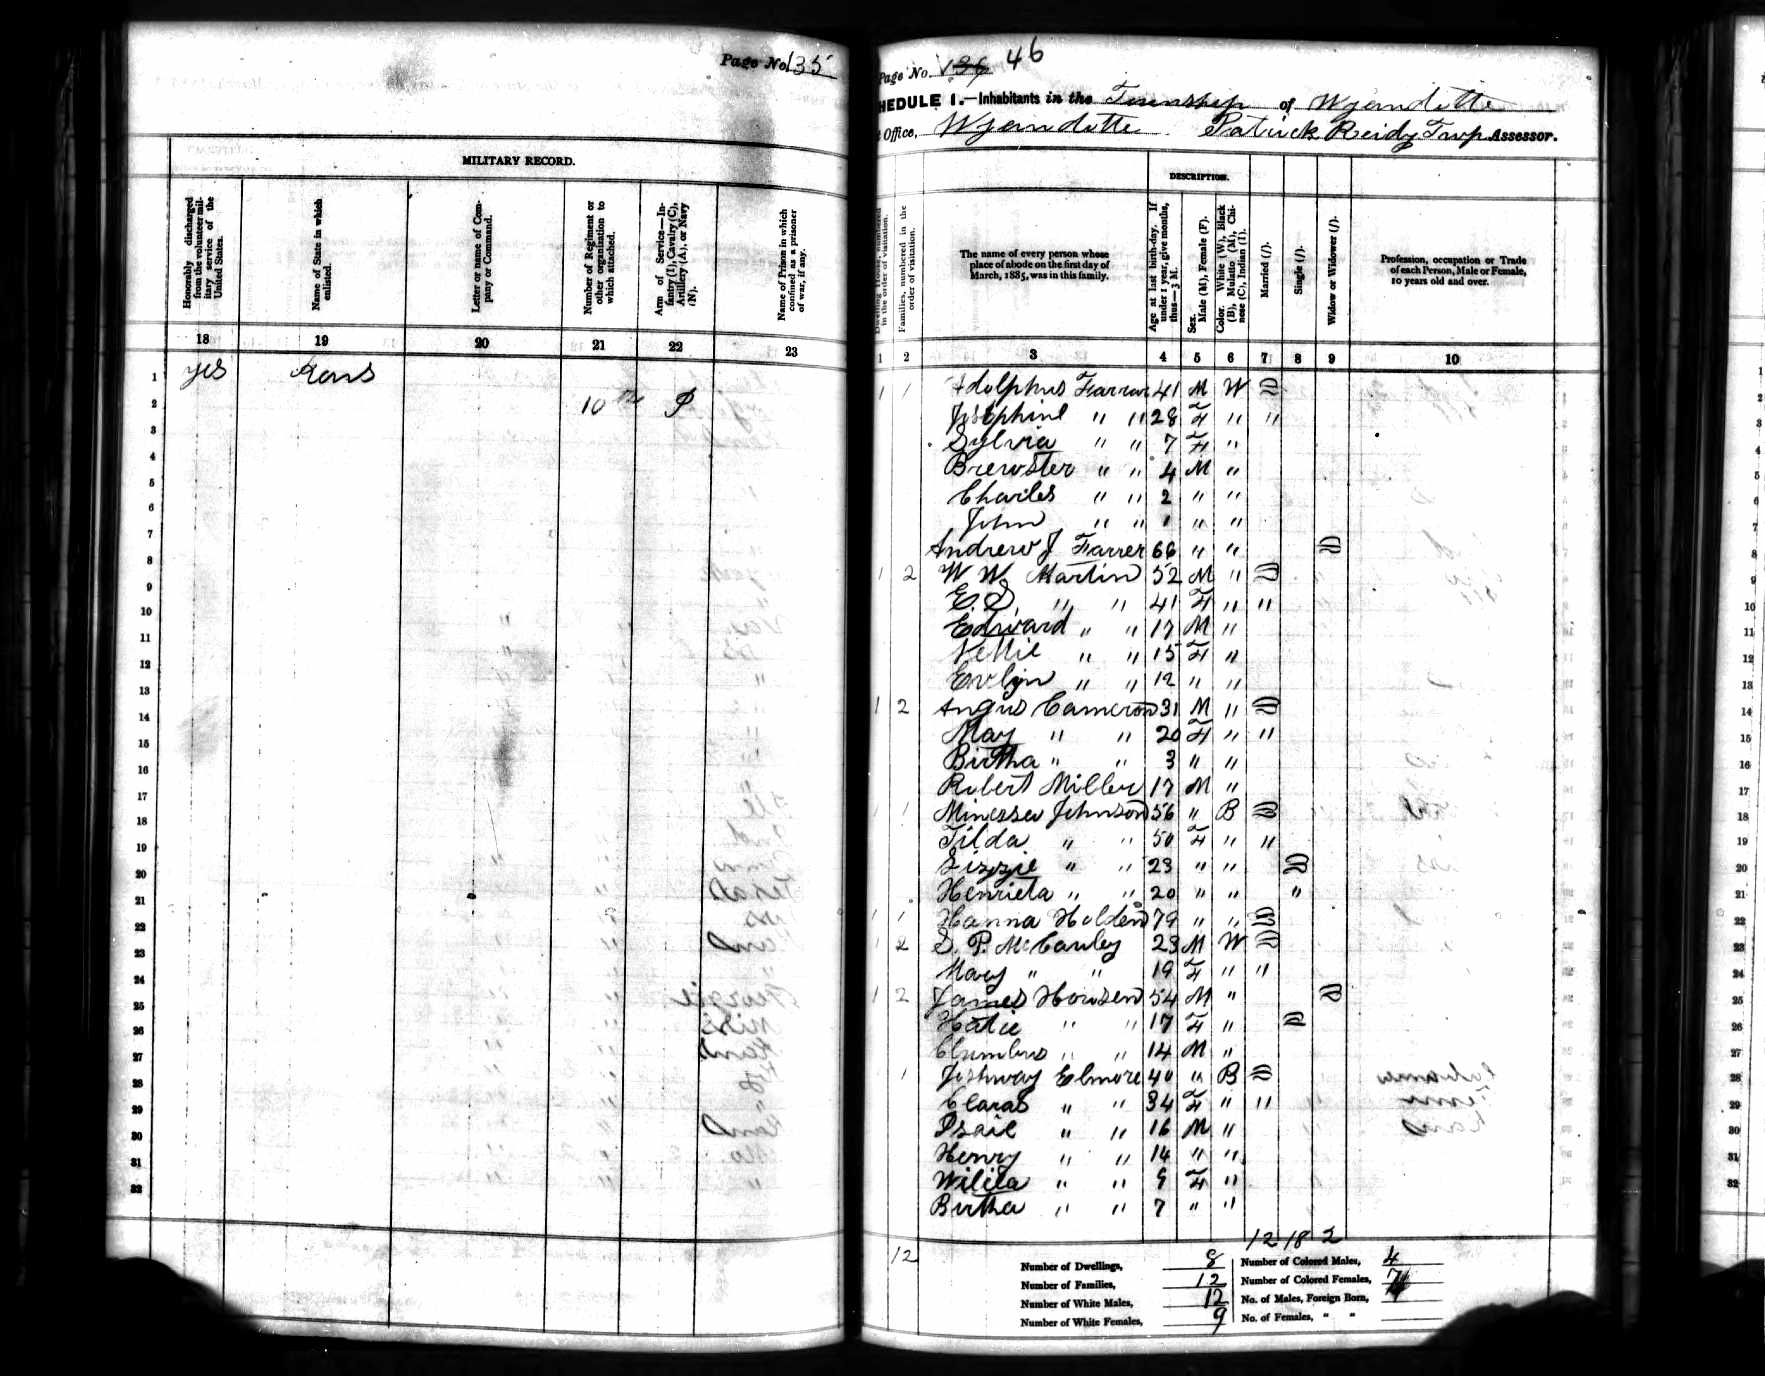 Page No 135
MILITARY RECORD.
Honorably discharged from the volunteer military service of the United States.
Name of State in which enlisted.
Letter or name of Company or Command.
Number of Regiment or other organization to which attached.
Arm of Service—Infantry (I), Cavalry (C), Artillery (A), or Navy (N).
Name of Prison in which confined as a prisoner of war, if any.
18 19 20 21 22 23
1 yes Kans
2 10th
3
4
5
6
7
8
9
10
11
12
13
14
15
16
17
18
19
20
21
22
23
24
25
26
27
28
29
30
31
32
Page No 136 46
HEDULE 1.—Inhabitants in the Township of Wyandotte
Office, Wyandotte Patrick Reidy Twp Assessor.
DESCRIPTION.
Dwelling Houses, numbered in the order of visitation.
Families, numbered in the order of visitation.
The name of every person whose place of abode on the first day of March, 1885, was in this family.
Age at last birth-day. If under 1 year, give months, thus—3 M.
Sex. Male (M), Female (F).
Color. White (W), Black (B), Mulatto (M), Chinese (C), Indian (I).
Married (/).
Single (/).
Widow or Widower (/).
Profession, occupation or Trade of each Person, Male or Female, 10 years old and over.
1 2 3 4 5 6 7 8 9 10
1 1 Adolphus Farrar 41 M W
Josephine " " 28 F " "
Sylvia " " 7 F "
Brewster " " 4 M "
Charles " " 2 " "
John " " 1 " "
Andrew J Farrer 66 " "
1 2 W W Martin 52 M "
E. S. " " 41 F " "
Edward " " 17 M "
Nettie " " 15 F "
Evlyn " " 12 " "
1 2 Angus Cameron 31 M "
May " " 20 F " "
Birtha " " 3 " "
Robert Miller 17 M "
1 1 Minessa Johnson 56 " B
Tilda " " 50 F " "
Lizzie " " 23 " "
Henrieta " " 20 " " "
1 1 Hanna Holden 79 " "
1 2 S. P. McCauley 23 M W
Mary " " 19 F " "
1 2 James Howsen 54 M "
Katie " " 17 F "
Clumbus " " 14 M "
1 Joshway Elmore 40 " B
Claras " " 34 F " "
Isaic " " 16 M "
Henry " " 14 " "
Wilila " " 9 F "
Birtha " " 7 " "
12 18 2
12
Number of Dwellings, 8
Number of Families, 12
Number of White Males, 12
Number of White Females, 9
Number of Colored Males, 4
Number of Colored Females, 7
No. of Males, Foreign Born,
No. of Females, " "
1
2
3
4
5
6
7
8
9
10
11
12
13
14
15
16
17
18
19
20
21
22
23
24
25
26
27
28
29
30
31
32